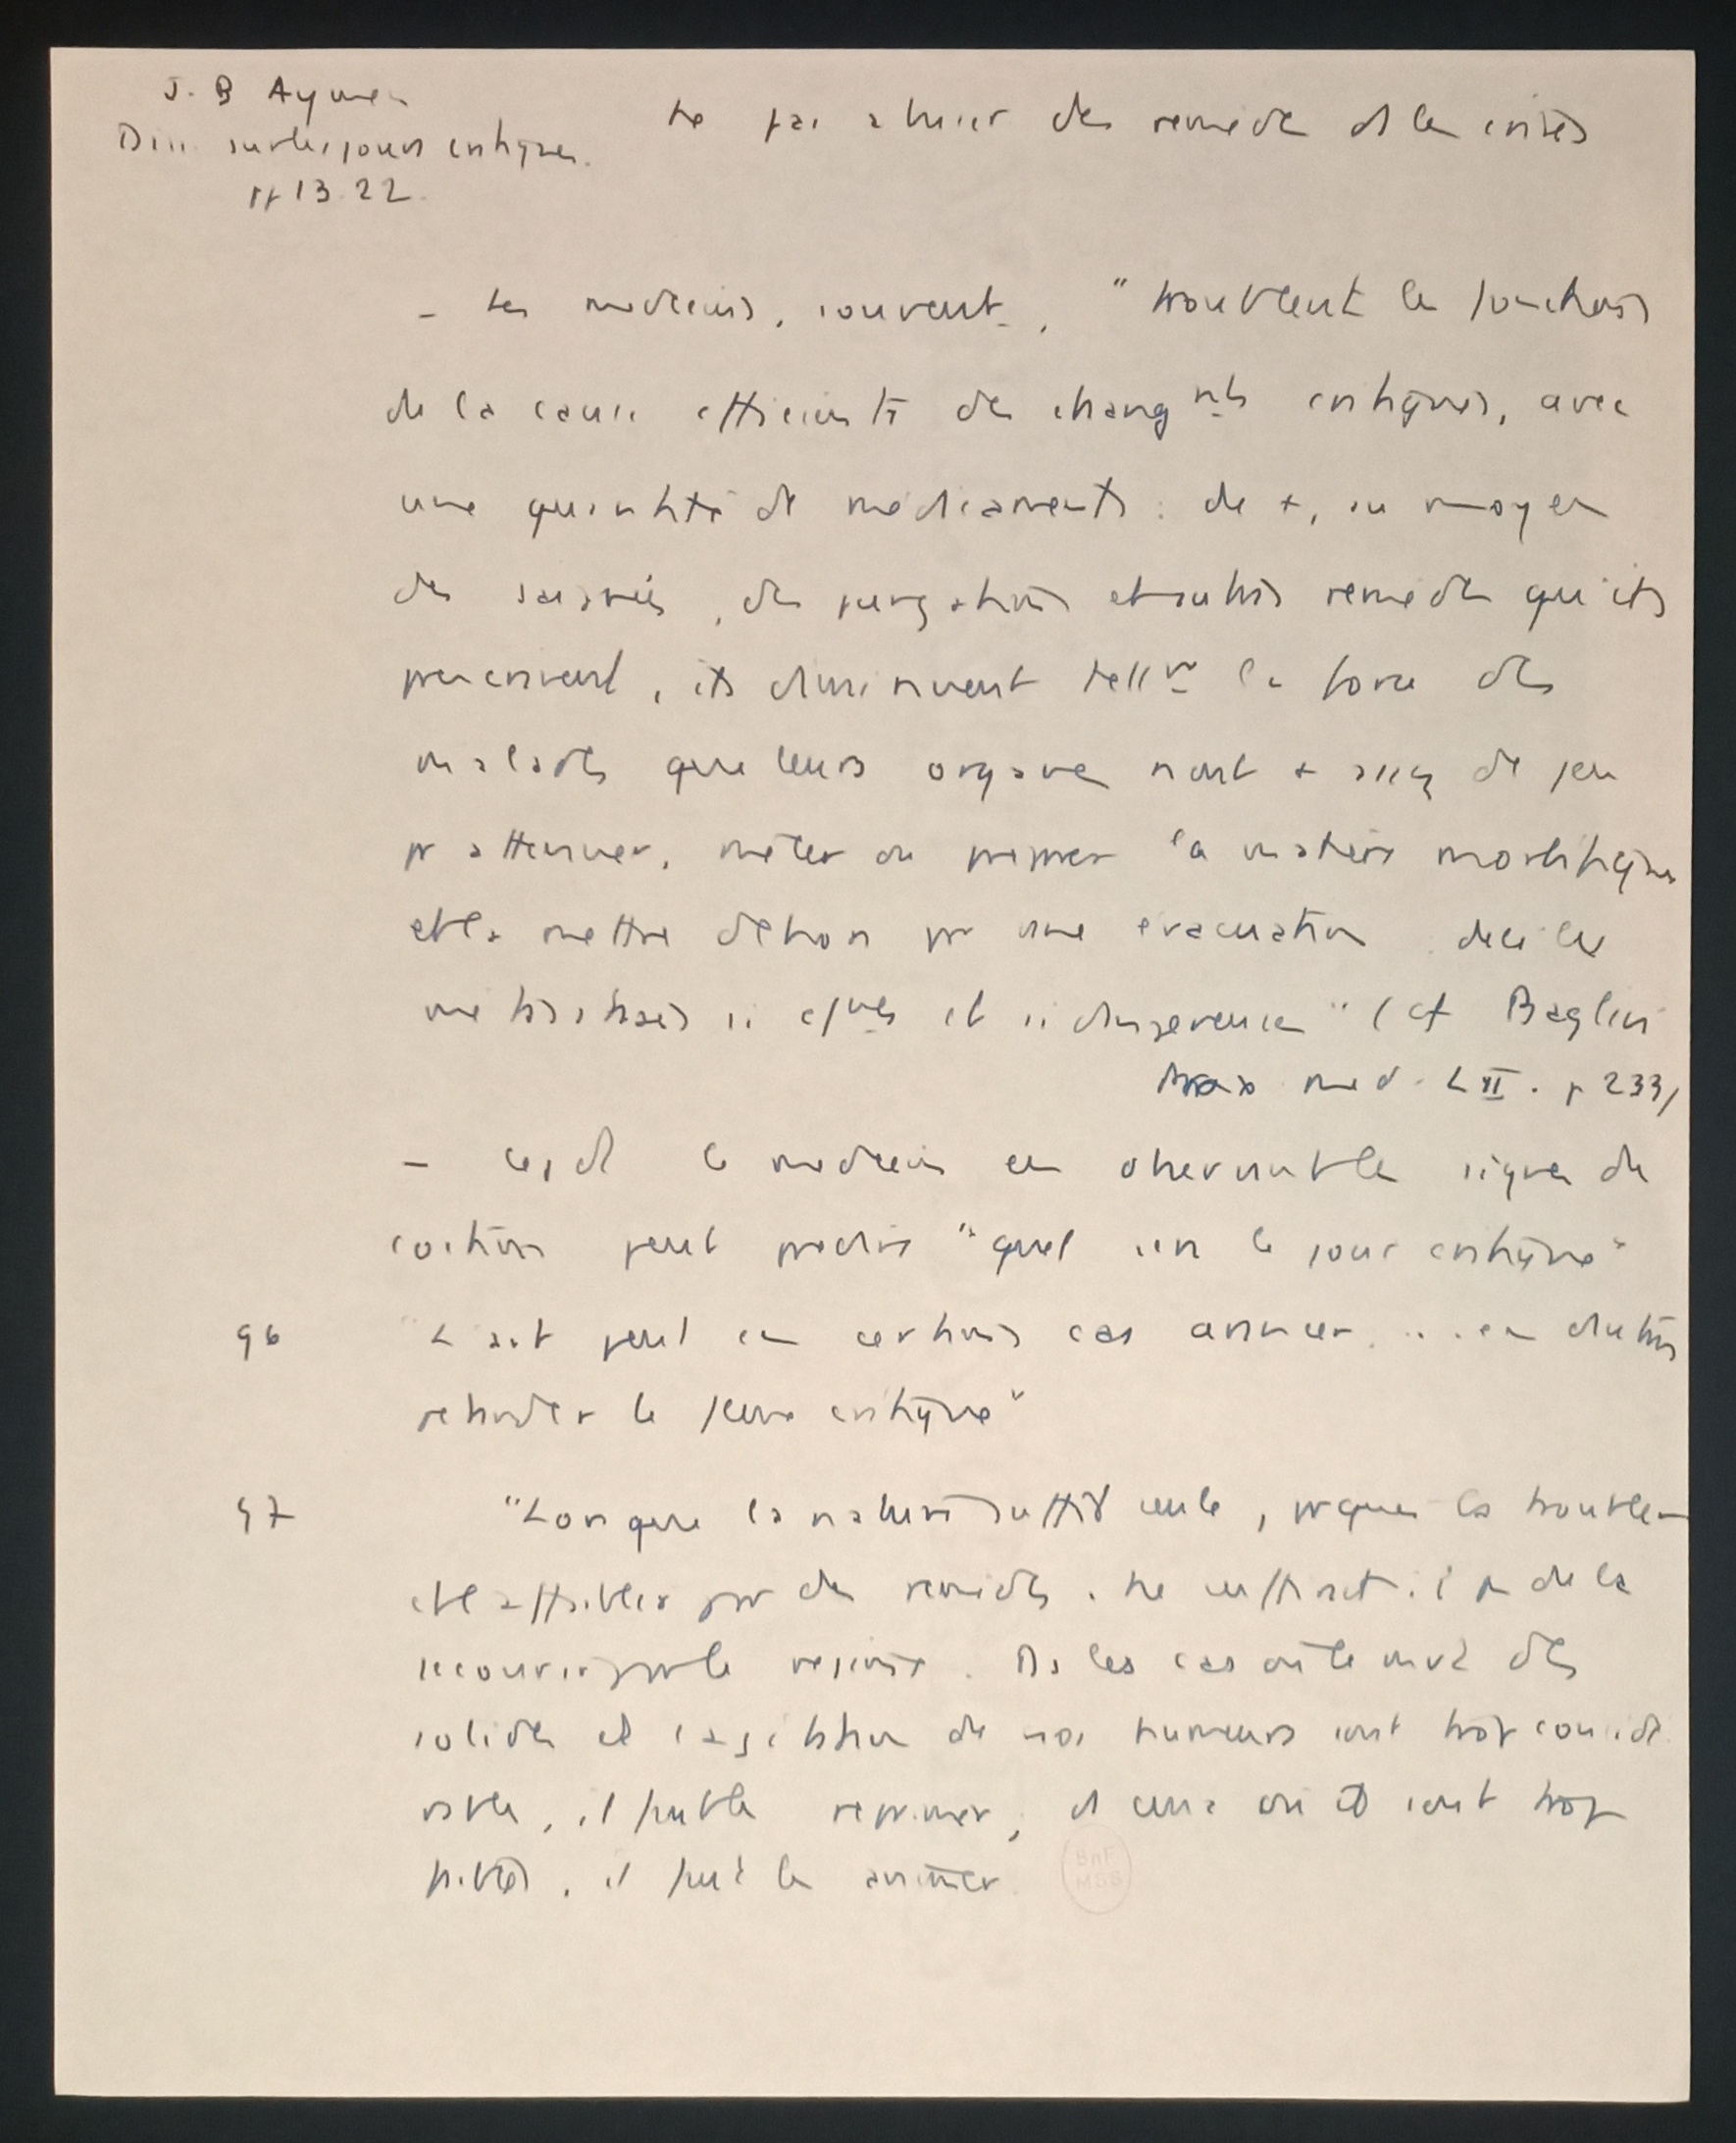 J. B Aymen
Diss. sur les jours critiques.
pp 13. 22.
Ne pas abuser des remèdes ds les crises
- Les médecins, souvent, "troublent les fonctions
de la cause efficiente des changmts critiques, avec
une quantité de médicaments : de +, au moyen
des saignées, des purgations et autres remèdes qu'ils
prescrivent, ils diminuent tellmt la force des
malades que leurs organes n'ont + assez de jeu
pr atténuer, mêler ou préparer la matière morbifique
et la mettre dehors pr une évacuation
(cf Baglivi
Prax med. L II. p 233)
- Cepd le médecin en observant les signes de
coction peut prédire "quel sera le jour critique"
96 "L'art peut en certains cas avancer .... en d'autres
retarder le jour critique"
97 "Lorsque la nature suffit seule, prquoi la troubler
et l'affaiblir par des remèdes. Ne suffirait-il pas de la
secourir par le régime. Ds les cas où le mvt des
solides et l'agitation de nos humeurs sont trop considé
rables, il faut les réprimer, ds ceux où ils sont trop
faibles, il faut les animer.
BnF
MSS